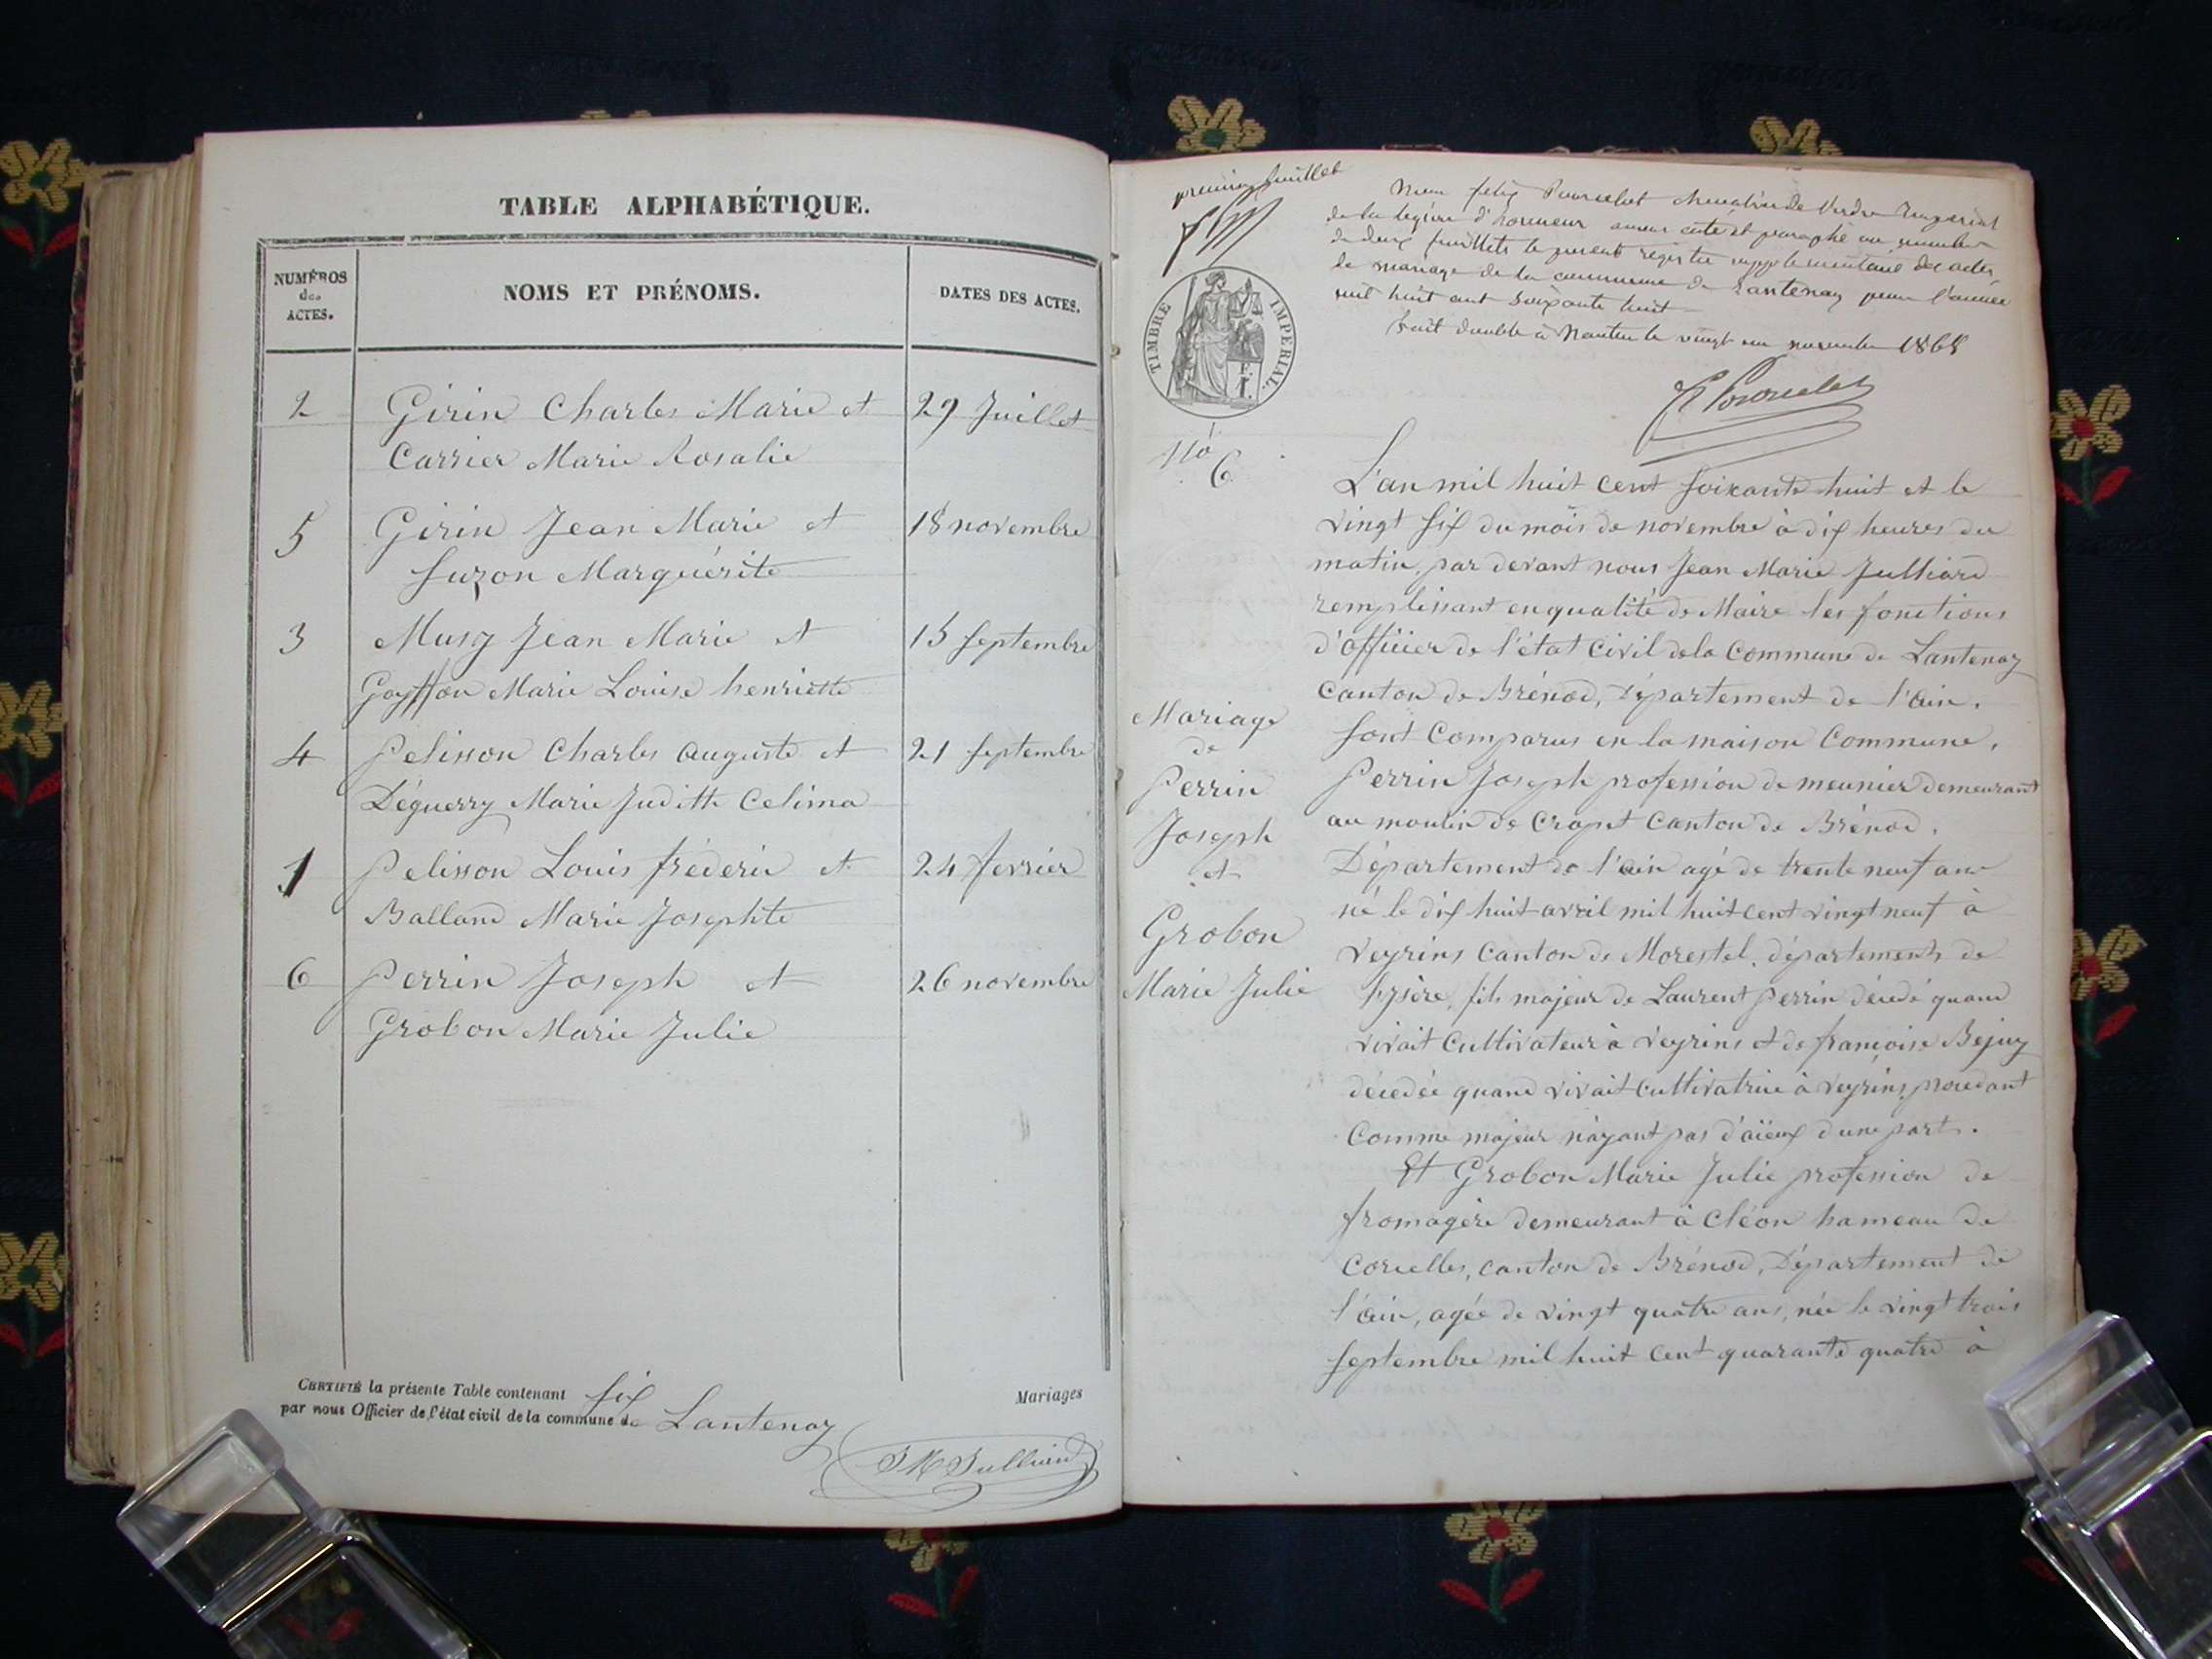 TABLE ALPHABÉTIQUE.
NUMÉROS
des
ACTES.
NOMS ET PRÉNOMS.
DATES DES ACTES.
2 Girin Charles Marie et 29 Juillet
Carrier Marie Rosalie
5 Girin Jean Marie et 18 novembre
Suzon Marguérite
3 Musy Jean Marie et 15 Septembre
Marie Louise henriette
4 Pelisson Charles auguste et 21 Septembre
Déguerry Marie Judith Celima
1 Pelisson Louis fréderic et 24 fevrier
Balland Marie Josephte
6 Perrin Joseph et 26 novembre
Grobon Marie Julie
CERTIFIÉ la présente Table contenant six Mariages
par nous Officier de l'état civil de la commune de Lantenay
J M Julliard
premier feuillet
Nous felix Pourcelot chevalier de l'ordre Imperial
de la legion d'honneur avons coté et paraphé au nombre
de deux feuillets le present registre supplementaire des actes
de mariage de la commune de Lantenay pour l'année
mil huit cent soixante huit
Fait double à Nantua le vingt un novembre 1868
TIMBRE IMPERIAL.
No
6
Mariage
de
Perrin
Joseph
et
Grobon
Marie Julie
L'an mil huit cent soixante huit et le
vingt six du mois de novembre à dix heures du
matin, par devant nous Jean Marie Julliard
remplissant en qualité de Maire les fonctions
d'officier de l'état civil de la Commune de Lantenay
canton de Brénod, Département de l'ain.
Sont Comparus en la maison Commune,
Perrin Joseph profession de meunier demeurant
au moulin de Crapet Canton de Brénod,
Département de l'ain agé de trente neuf ans
né le dix huit avril mil huit cent vingt neuf à
Veyrins Canton de Morestel, département de
l'ysère, fils majeur de Laurent Perrin décedé quand
vivait Cultivateur à Veyrins et de françoise Bejuy
décedée quand vivait cultivatrice à Veyrins, procedant
Comme majeur n'ayant pas d'aïeux d'une part.
Et Grobon Marie Julie profession de
fromagère demeurant à Cléon hameau de
Corcelles, canton de Brénod, Département de
l'ain, agée de vingt quatre ans, née le vingt trois
septembre mil huit cent quarante quatre à